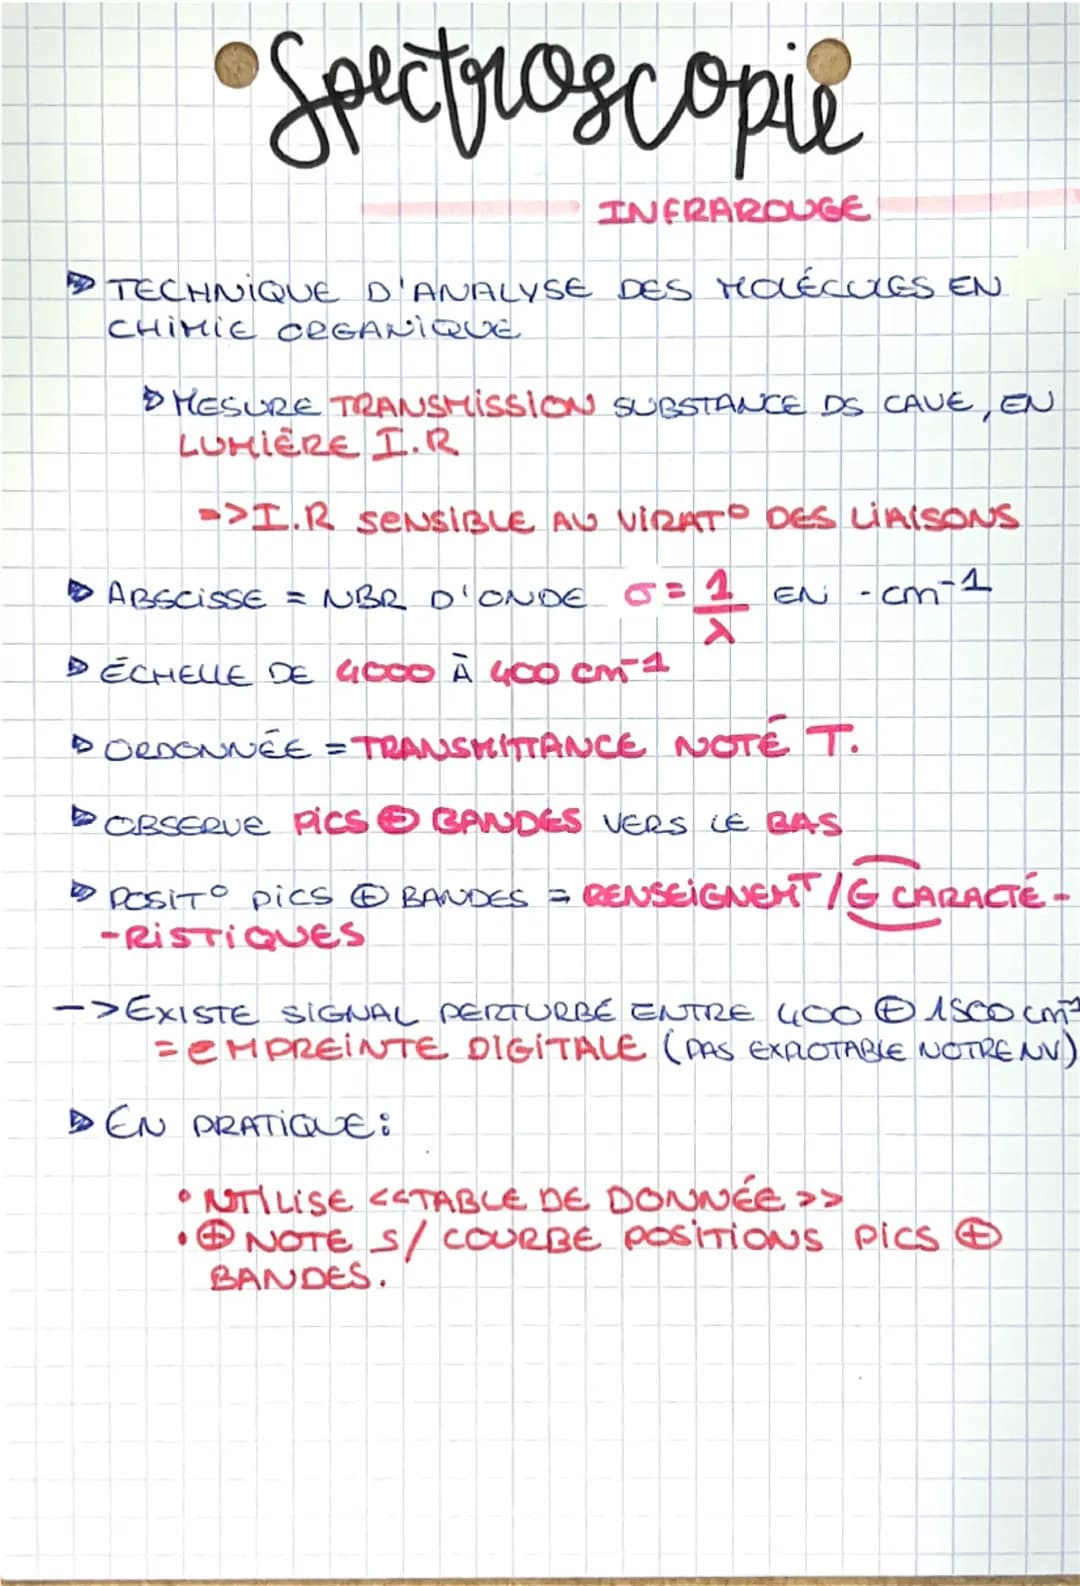 Spectroscopie
INFRAROUGE
TECHNIQUE D'ANALYSE DES MOLÉCULES EN
CHIMIE ORGANIQUE
MESURE TRANSMISSION SUBSTANCE DS CAVE, EN
LUMIÈRE I.R
=>I.R SENSIBLE AU VIRAT° DES LIAISONS
ABSCISSE = NBR D'ONDE σ = 1/λ EN -cm⁻¹
ÉCHELLE DE 4000 À 400 cm⁻¹
ORDONNÉE = TRANSMITTANCE NOTÉ T.
OBSERVE PICS ⊕ BANDES VERS LE BAS
POSIT° PICS ⊕ BANDES = RENSEIGNEMT /G CARACTÉ-
-RISTIQUES
-> EXISTE SIGNAL PERTURBÉ ENTRE 400 ⊕ 1500 cm⁻¹
= EMPREINTE DIGITALE (PAS EXPLOTABLE NOTRE NV)
EN PRATIQUE:
• UTILISE <<TABLE DE DONNÉE>>
• ⊕ NOTE S/ COURBE POSITIONS PICS ⊕
BANDES.